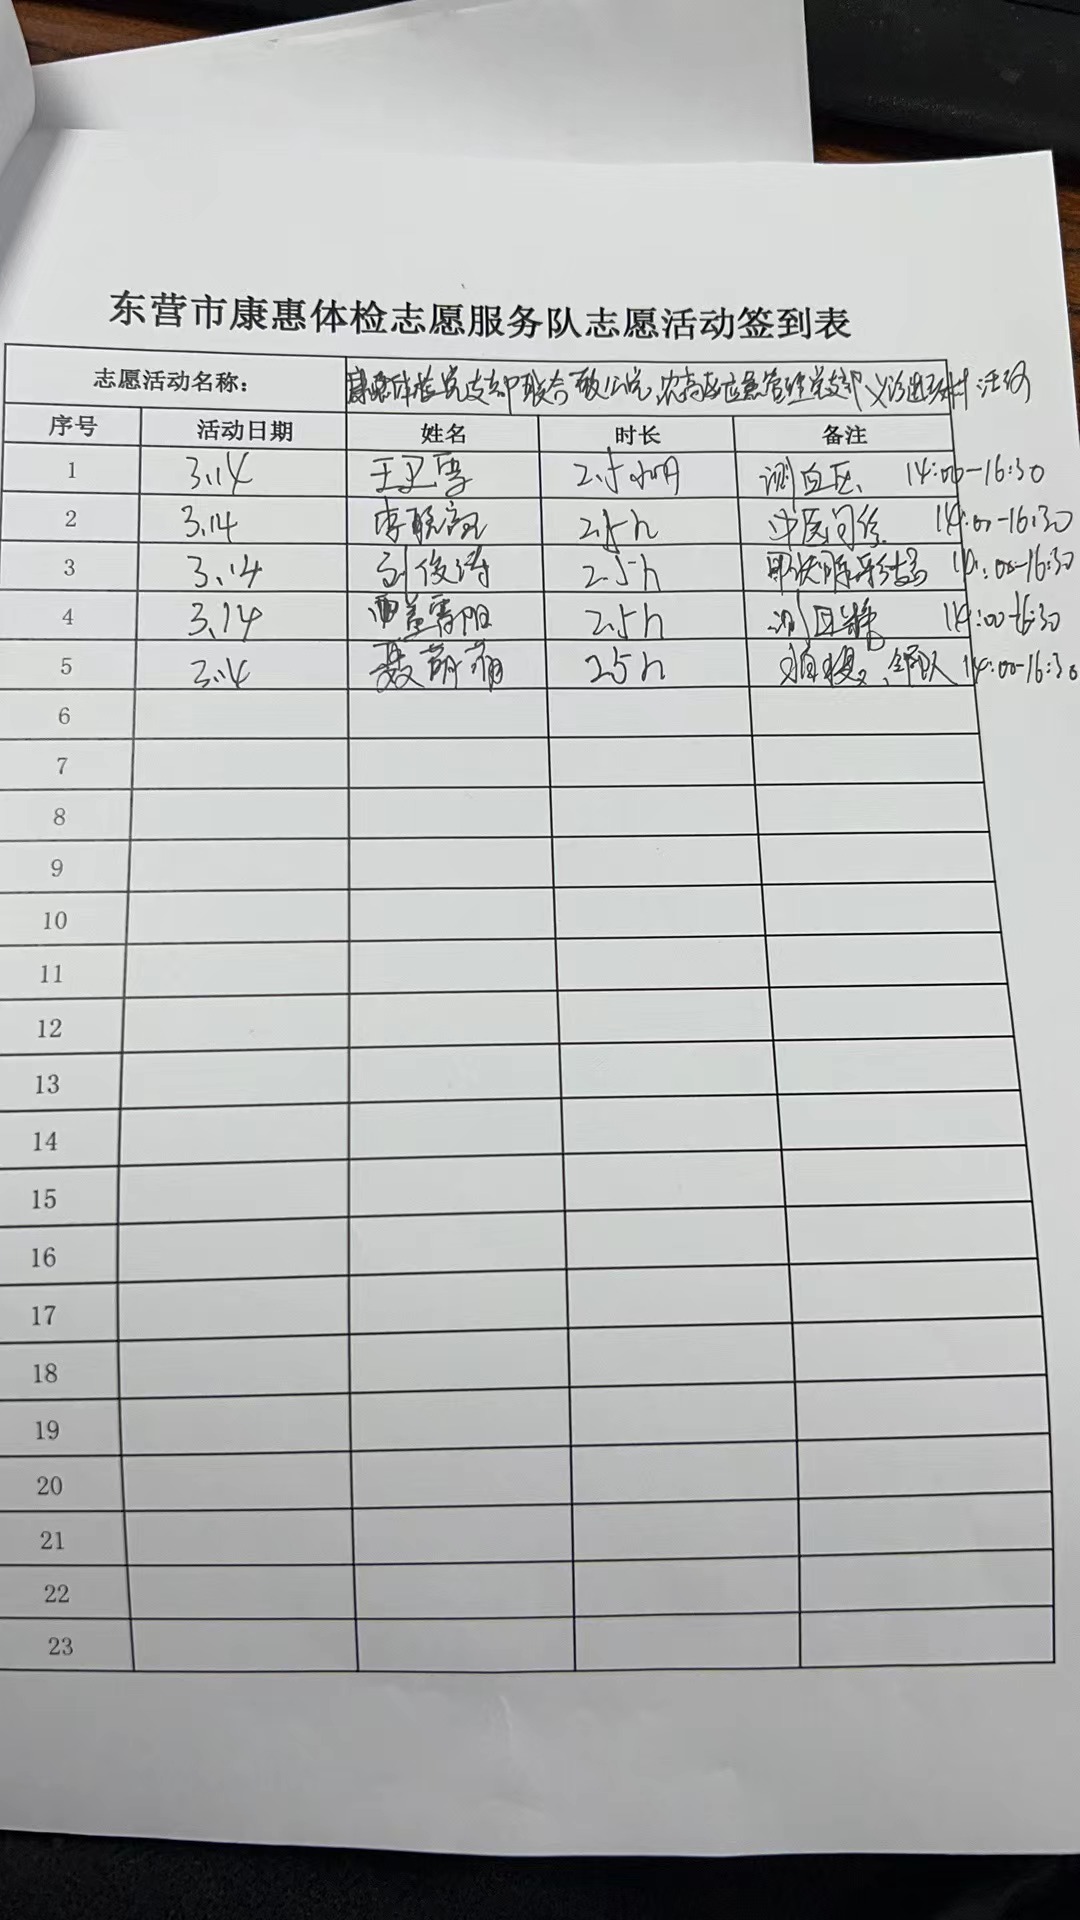 东营市康惠体检志愿服务队志愿活动签到表
志愿活动名称： 康惠体检党支部联合 农高区应急管理党支部 义诊进 村 活动
序号 活动日期 姓名 时长 备注
1 3.14 王卫 2.5小时 测血压 14:00-16:30
2 3.14 李 2.5h 中医问诊 14:00-16:30
3 3.14 刘俊涛 2.5h 14:00-16:30
4 3.14 2.5h 测血糖 14:00-16:30
5 3.14 聂萌萌 2.5h 领队 14:00-16:30
6
7
8
9
10
11
12
13
14
15
16
17
18
19
20
21
22
23